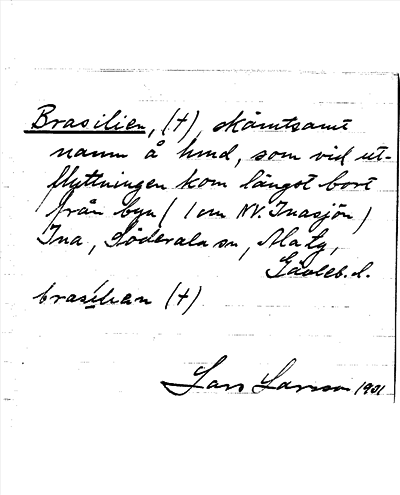 Brasilien, (+), skämtsamt
namn å hmd, som vid ut-
flyttningen kom längst bort
från byn (1 om NV. Inasjön)
Ina, Söderala sn,
Gävleb. l.
brasilian (+)
Lars Larsson 1931